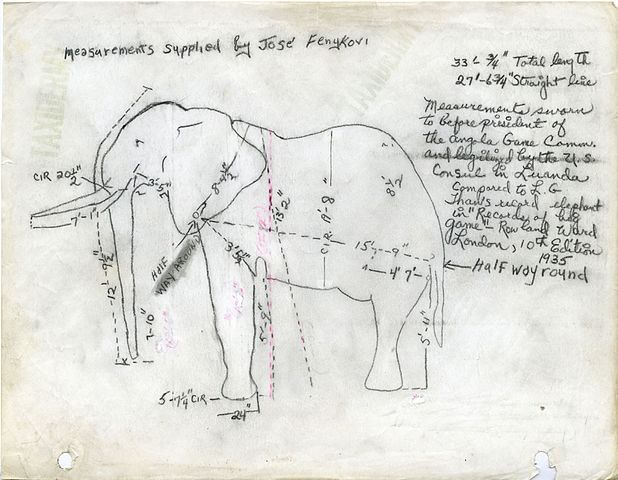 measurements supplied by José Fenykovi
33'- 3/4" Total length
27'-6 3/4" Straight line
Measurements sworn
to before president of
the Angola Game Comm.
and legalized by the U.S
Consul in Luanda
Compared to L.G
Thaw's record elephant
in "Records of big
game" - Rowland Ward
London, 10th Edition
1935
Half way round
CIR 20 1/2"
7'-1"
3'-5"
13'-2"
CIR
15'-9"
4'-7"
3'-5"
HALF
WAY AROUND
12'-9 1/2"
7'-10"
5'-9"
5'-11"
5'-7 1/4" CIR
24"